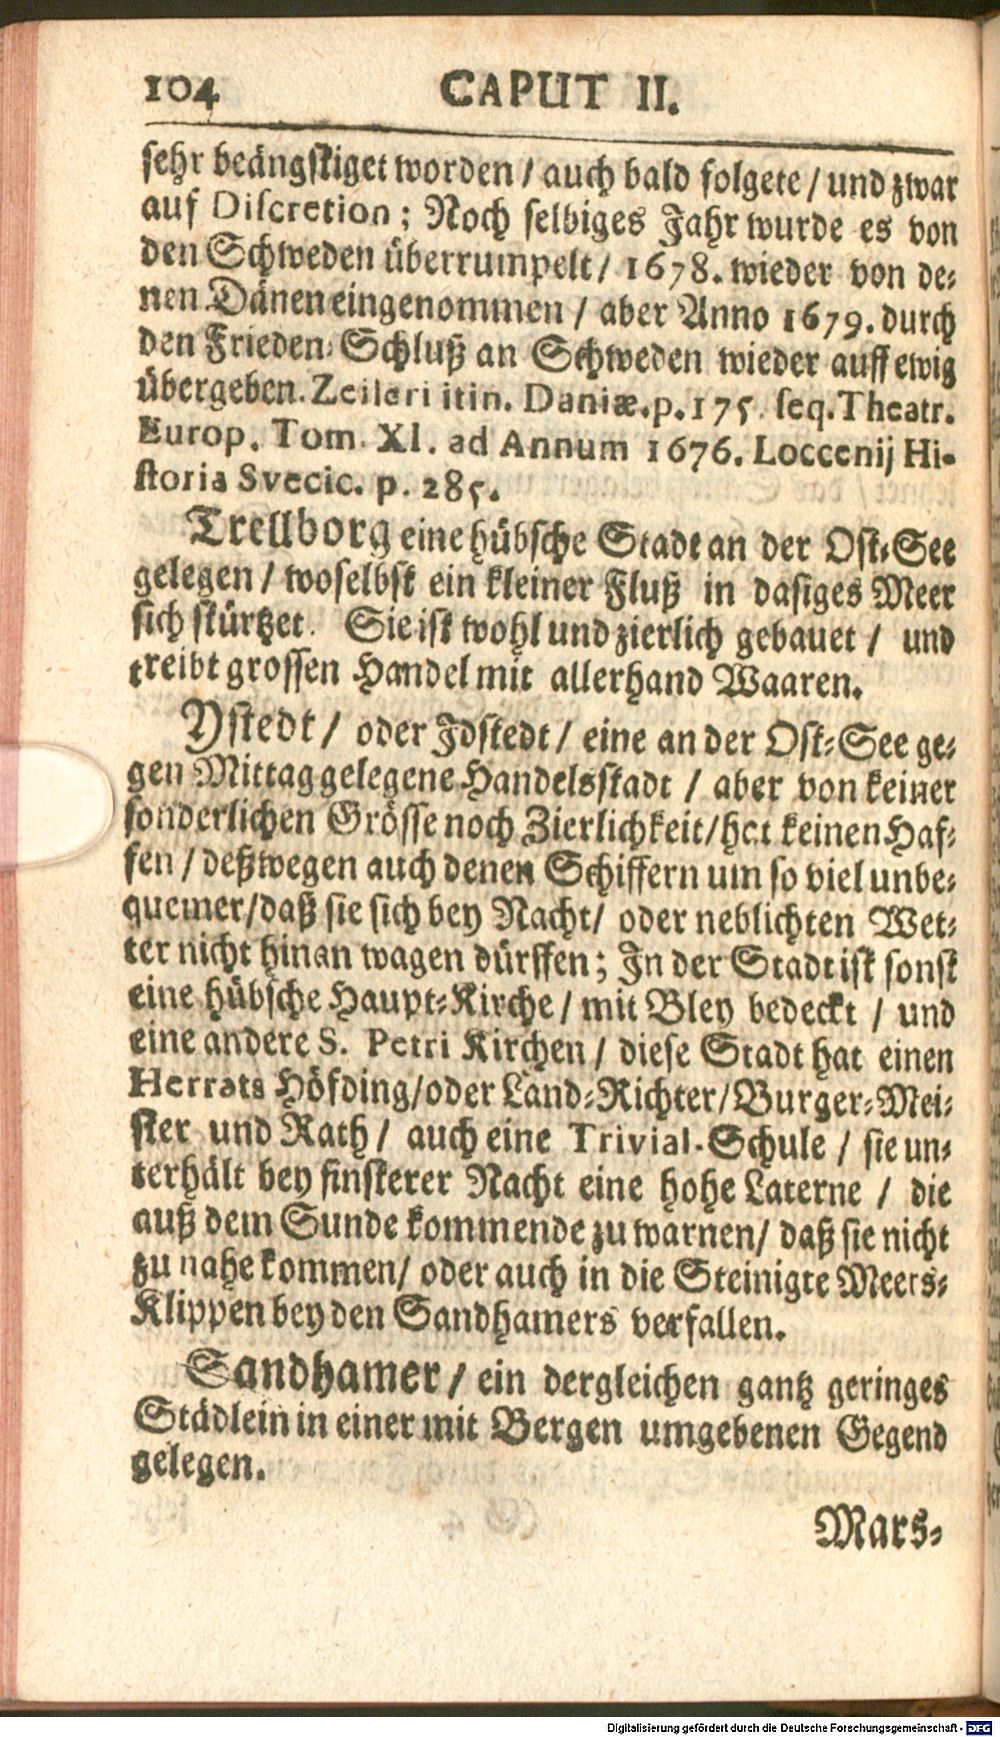 104 CAPUT II.
sehr beängstiget worden / auch bald folgete / und zwar
auf Discretion; Noch selbiges Jahr wurde es von
den Schweden überrumpelt / 1678. wieder von de-
nen Dänen eingenommen / aber Anno 1679. durch
den Frieden-Schluß an Schweden wieder auff ewig
übergeben. Zeileri itin. Daniæ. p. 175. seq. Theatr.
Europ. Tom. XI. ad Annum 1676. Loccenij Hi-
storia Svecic. p. 285.
Trellborg eine hübsche Stadt an der Ost-See
gelegen / woselbst ein kleiner Fluß in dasiges Meer
sich stürtzet. Sie ist wohl und zierlich gebauet / und
treibt grossen Handel mit allerhand Waaren.
Ystedt / oder Idstedt / eine an der Ost-See ge-
gen Mittag gelegene Handelsstadt / aber von keiner
sonderlichen Grösse noch Zierlichkeit / hat keinen Haf-
fen / deßwegen auch denen Schiffern um so viel unbe-
quemer / daß sie sich bey Nacht / oder neblichten Wet-
ter nicht hinan wagen dürffen; In der Stadt ist sonst
eine hübsche Haupt-Kirche / mit Bley bedeckt / und
eine andere S. Petri Kirchen / diese Stadt hat einen
Herrats Höfding / oder Land-Richter / Burger-Mei-
ster und Rath / auch eine Trivial-Schule / sie un-
terhält bey finsterer Nacht eine hohe Laterne / die
auß dem Sunde kommende zu warnen / daß sie nicht
zu nahe kommen / oder auch in die Steinigte Meers-
Klippen bey den Sandhamers verfallen.
Sandhamer / ein dergleichen gantz geringes
Städlein in einer mit Bergen umgebenen Gegend
gelegen.
Mars-
Digitalisierung gefördert durch die Deutsche Forschungsgemeinschaft - DFG